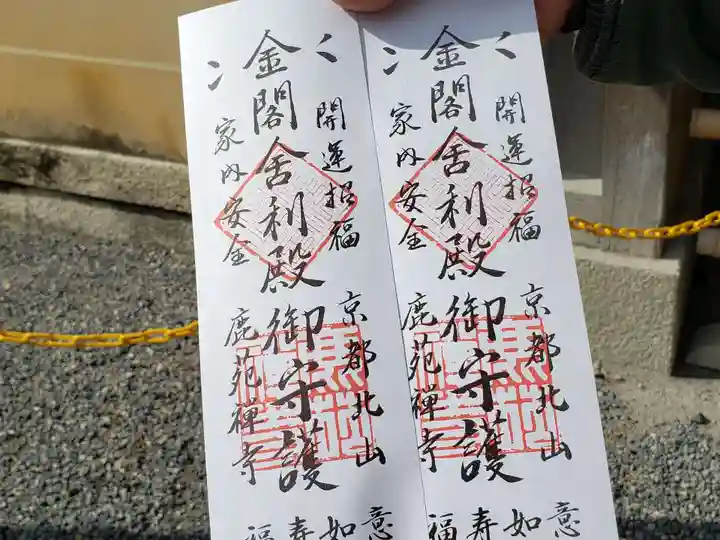 開運招福
金閣舎利殿
家内安全
京都北山
御守護
鹿苑禅寺
如意
福寿
開運招福
金閣舎利殿
家内安全
京都北山
御守護
鹿苑禅寺
如意
福寿